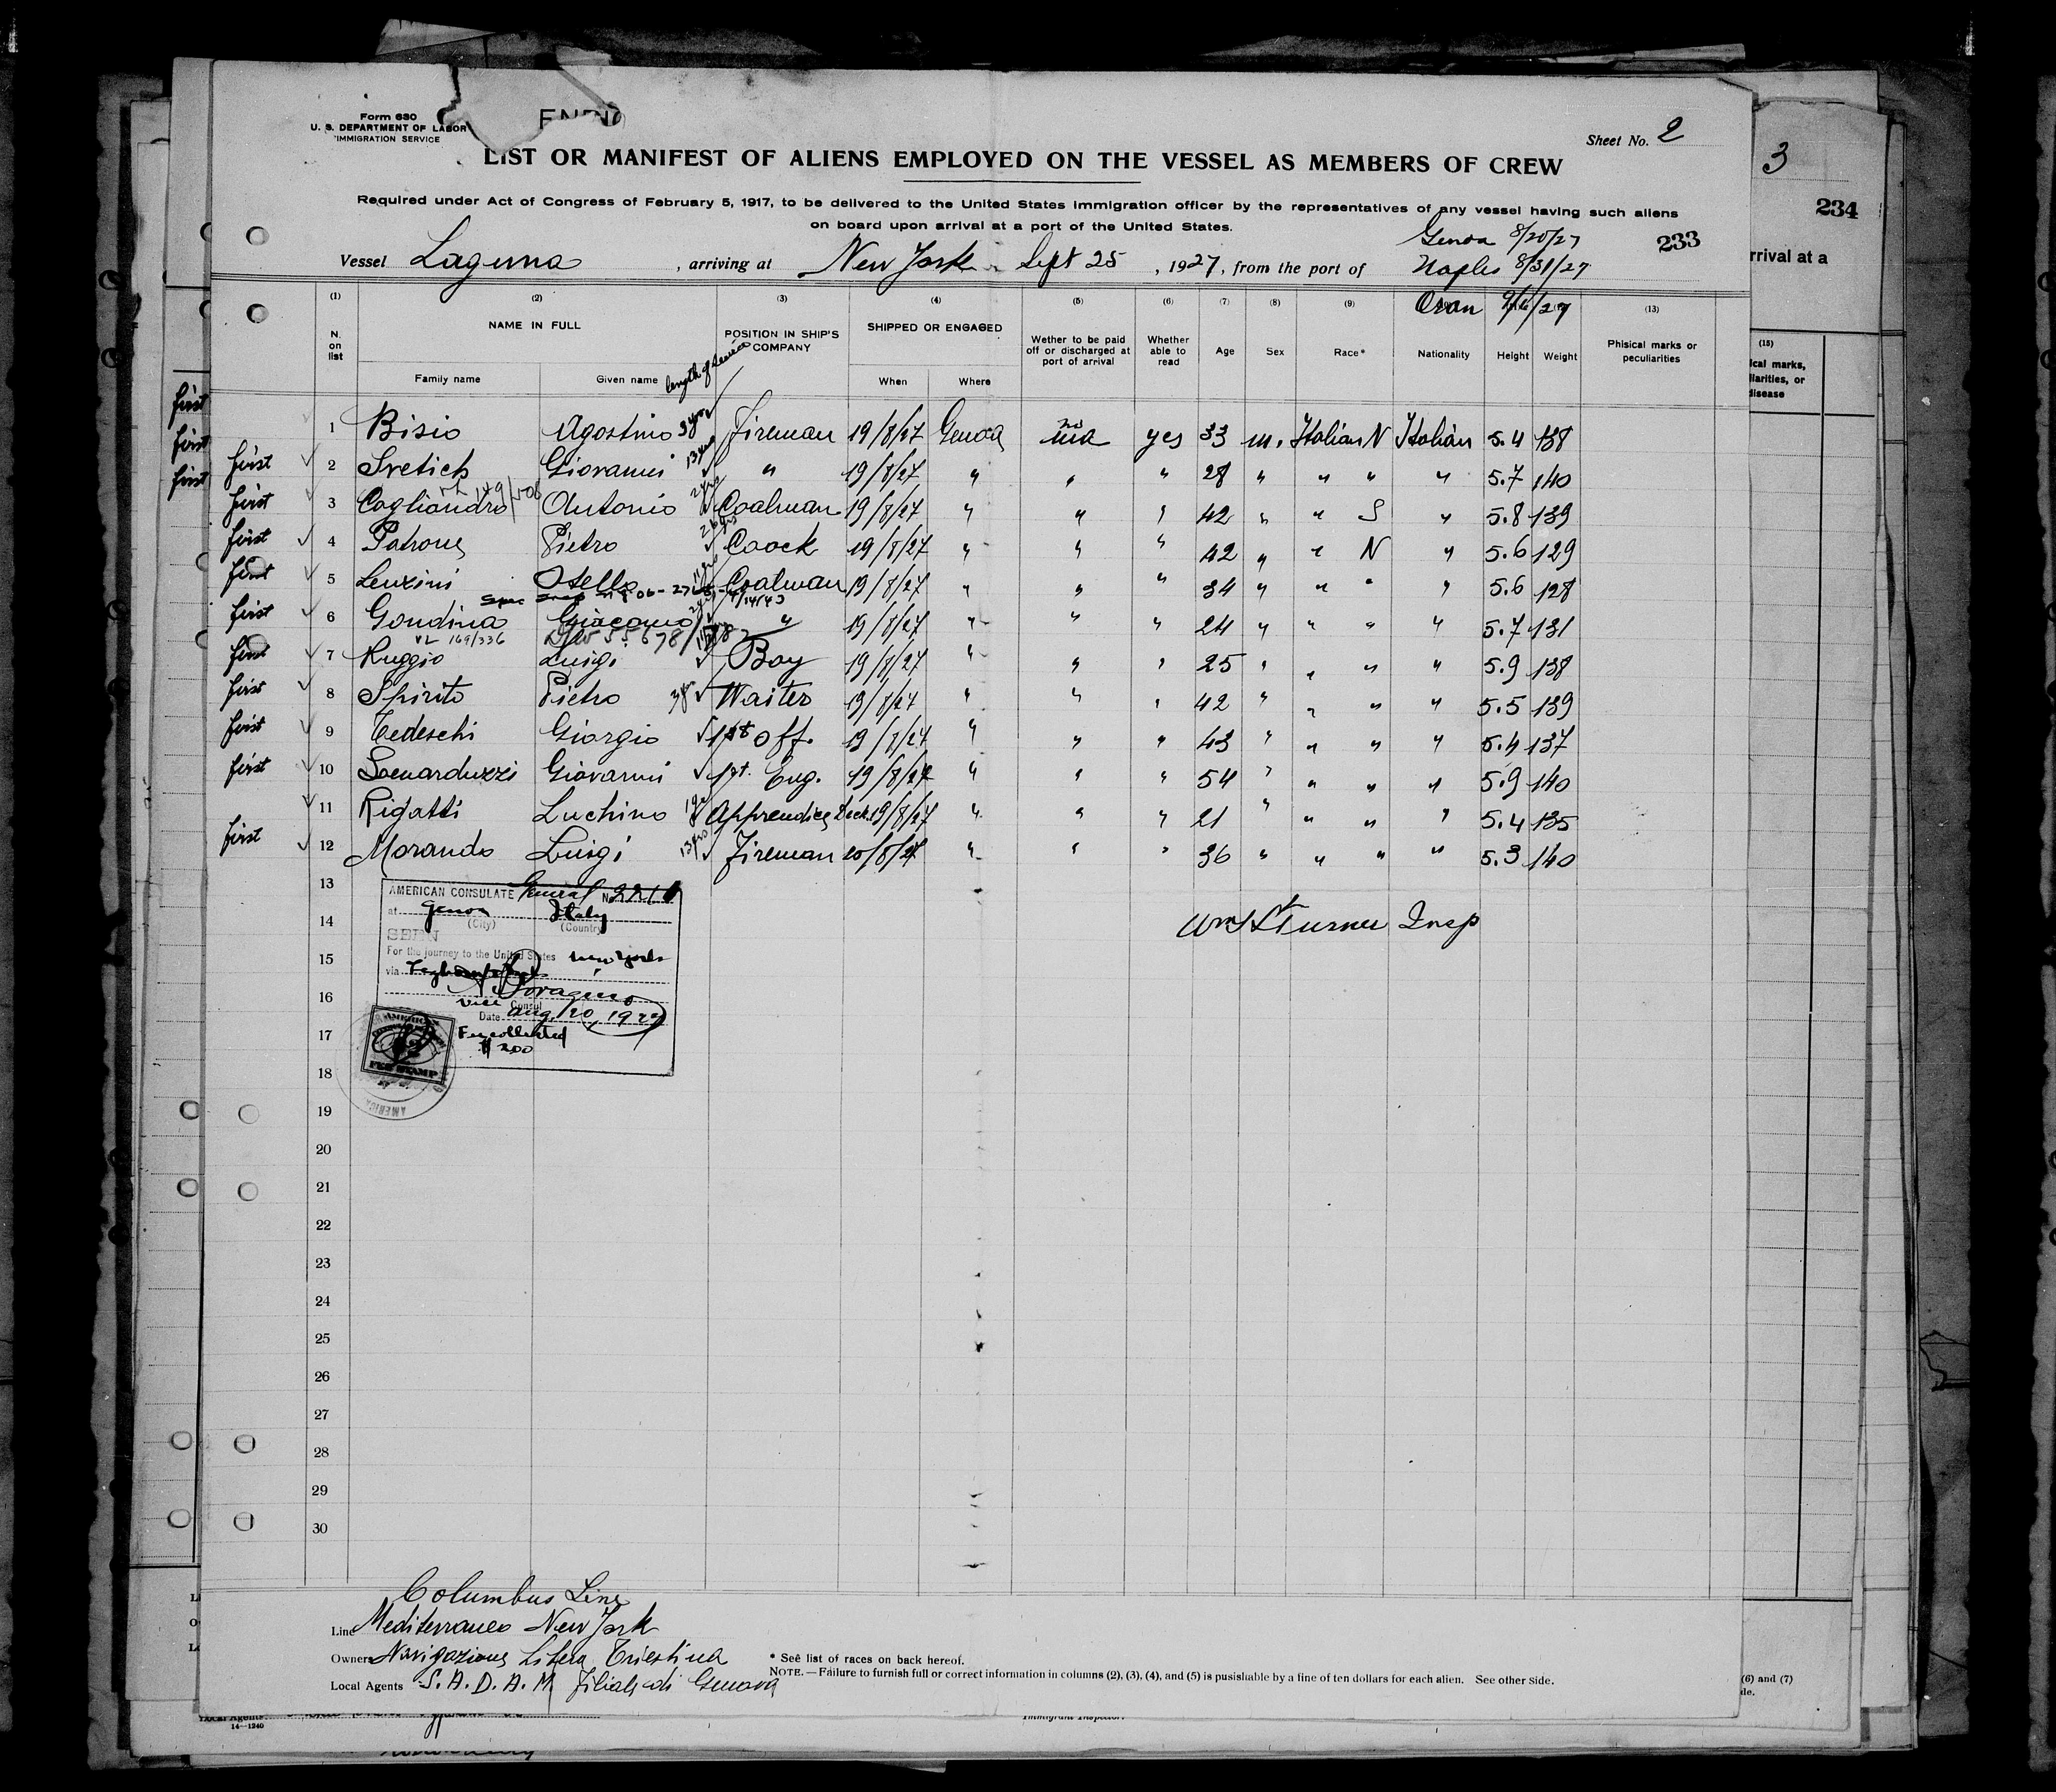 Form 680
U. S. DEPARTMENT OF LABOR
IMMIGRATION SERVICE
Sheet No. 2
3
LIST OR MANIFEST OF ALIENS EMPLOYED ON THE VESSEL AS MEMBERS OF CREW
234
Required under Act of Congress of February 5, 1917, to be delivered to the United States immigration officer by the representatives of any vessel having such aliens
on board upon arrival at a port of the United States.
Genoa 8/20/27
233
Vessel Laguna, arriving at New York Sept 25, 1927, from the port of Naples 8/31/27
rrival at a
Oran
(1) (2) (3) (4) (5) (6) (7) (8) (9) (13)
N. on list NAME IN FULL POSITION IN SHIP'S COMPANY SHIPPED OR ENGAGED Wether to be paid off or discharged at port of arrival Whether able to read Age Sex Race* Nationality Height Weight Phisical marks or peculiarities
Family name Given name length of service When Where
1 Bisio Agostino 3 yrs Fireman 19/8/27 Genoa no yes 33 m. Italian N Italian 5.4 138
first 2 Sretich Giovanni 13 yrs " 19/8/27 " " " 28 " " " " 5.7 140
first 3 Cogliandro Antonio Coalman 19/8/27 " " " 42 " " S " 5.8 139
first 4 Patrone Pietro Coock 19/8/27 " " " 42 " " N " 5.6 129
first 5 Lenzini Otello Coalman 19/8/27 " " " 34 " " " " 5.6 128
first 6 Gondina Giacomo " 19/8/27 " " " 24 " " " " 5.7 131
VL 169/336
first 7 Ruggio Luigi Boy 19/8/27 " " " 25 " " " " 5.9 138
first 8 Spirito Pietro Waiter 19/8/27 " " " 42 " " " " 5.5 139
first 9 Tedeschi Giorgio 1st off. 19/8/27 " " " 43 " " " " 5.4 137
first 10 Giovanni 1st. Eng. 19/8/27 " " " 54 " " " " 5.9 140
11 Rigatti Luchino Apprendice Deck 19/8/27 " " " 21 " " " " 5.4 135
first 12 Morando Luigi 13 yrs Fireman 20/8/27 " " " 36 " " " " 5.3 140
13
AMERICAN CONSULATE General
at Genoa Italy
(City) (Country)
14
Turner Insp
SEEN
15
For the journey to the United States New York
via
16
Vice Consul
Date Aug. 20, 1927
17
Fee collected
$ 2.00
AMERICAN
FEE STAMP
18
19
20
21
22
23
24
25
26
27
28
29
30
Columbus Line
Line Mediterraneo New York
Owners Navigazione Libera Triestina
* See list of races on back hereof.
NOTE.—Failure to furnish full or correct information in columns (2), (3), (4), and (5) is pusishable by a fine of ten dollars for each alien. See other side.
Local Agents S. A. D. A. M Filiale di Genova
(6) and (7)
14—1240
Immigrant Inspector.